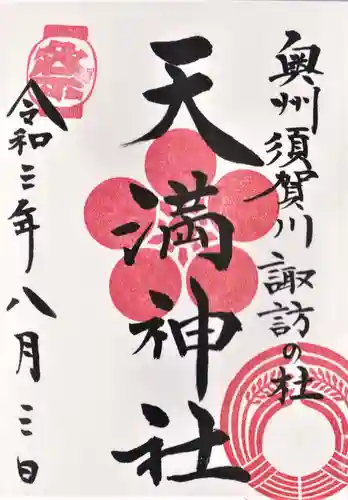 奥州須賀川 諏訪の杜
天満神社
令和三年八月三日
祭